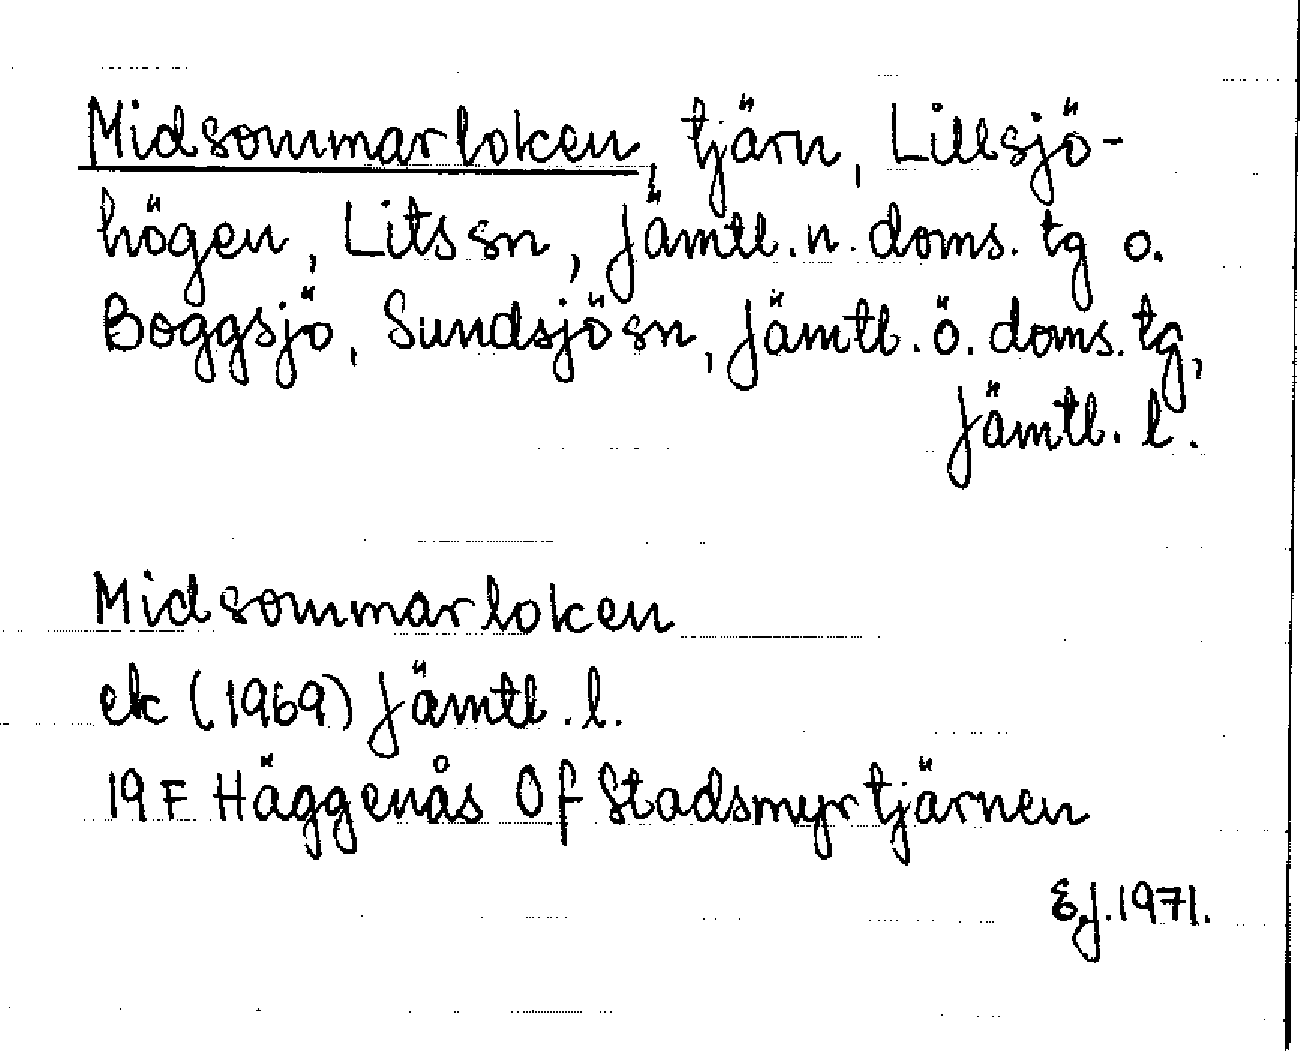 Midsommarloken, tjärn, Lillsjö-
högen, Lits sn, Jämtl. n. doms. tg o.
Boggsjö, Sundsjö sn, Jämtl. ö. doms. tg,
Jämtl. l.
Midsommarloken
ek (1969) Jämtl. l.
19 F Häggenås Of Stadsmyrtjärnen
E.J. 1971.